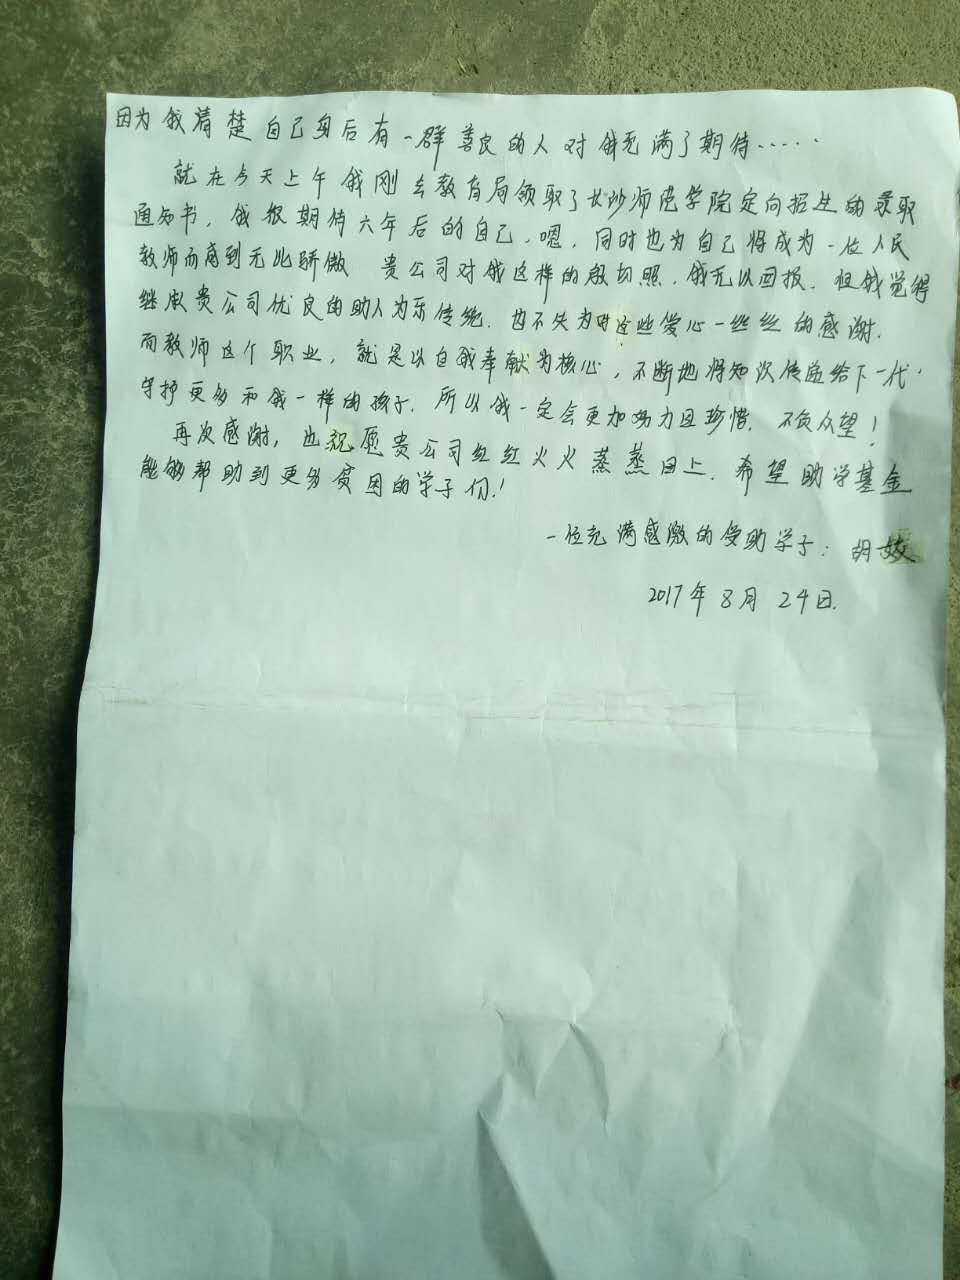 因为我清楚自己身后有一群善良的人对我充满了期待……
就在今天上午我刚去教育局领取了长沙师范学院定向招生的录取
通知书，我很期待六年后的自己，嗯，同时也为自己将成为一位人民
教师而感到无比骄傲 贵公司对我这样的殷切照，我无以回报，但我觉得
继承贵公司优良的助人为乐传统，也不失为对这些爱心一丝丝的感谢．
而教师这个职业，就是以自我奉献为核心，不断地将知识传递给下一代，
守护更多和我一样的孩子．所以我一定会更加努力且珍惜，不负众望！
再次感谢，也祝愿贵公司红红火火蒸蒸日上．希望助学基金
能够帮助到更多贫困的学子们！
一位充满感激的受助学子：胡姣
2017年8月24日．